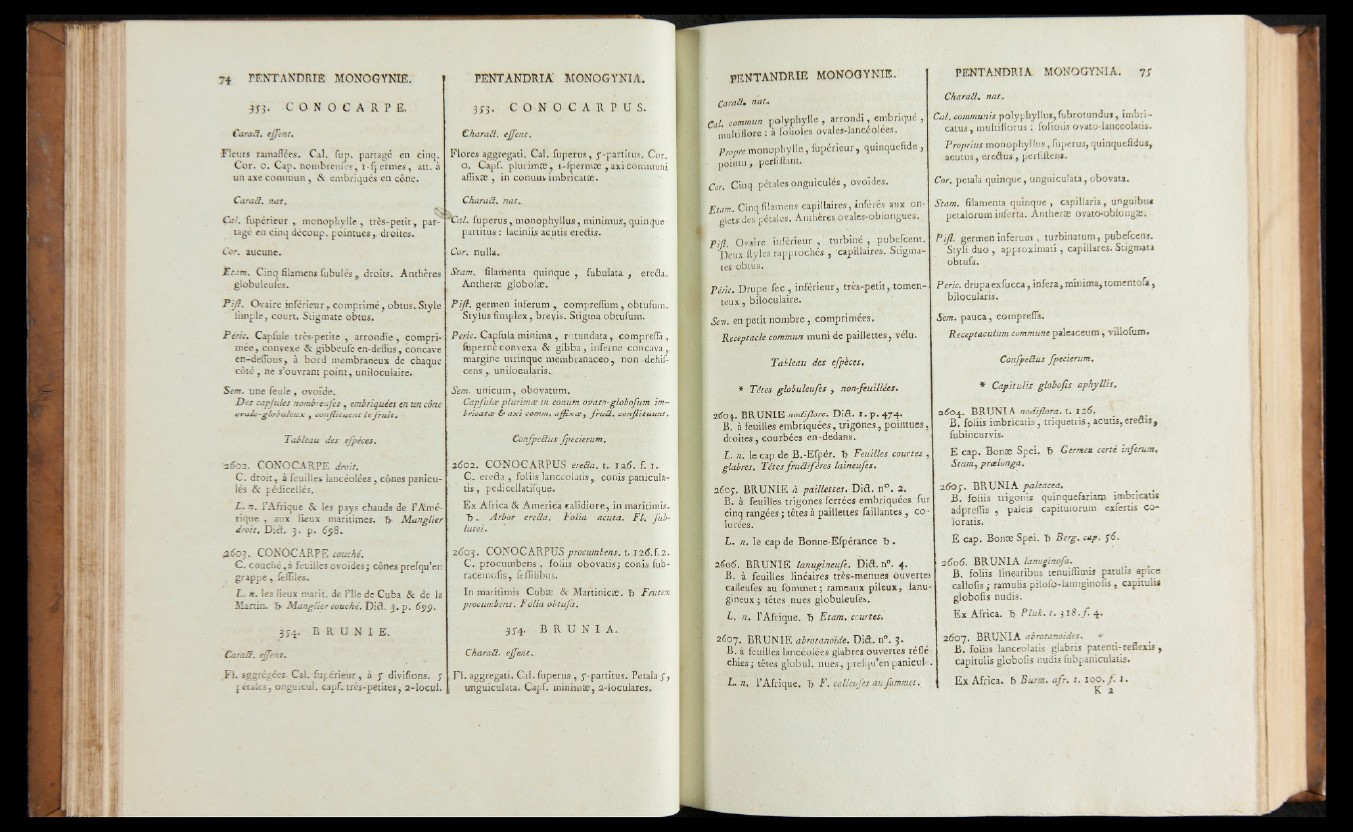 74 PENTANDRIE MONOGYNIE.
353. CONOCARPE.
Caract. essent.
Fleurs ramassées. Cal. sup. partagé en cinq.
Cor. 0. Cap. nombreuses, 1-spermes, att. à
un axe commun, & embriqués en cône.
Caract. nat.
Cal. supérieur, monophylle, très-petit, par-
tagé en cinq découp. pointues, droites.
Cor. aucune.
Etam. Cinq filamens subulés, droits. Anthères
globuleuses.
Pist. Ovaire inférieur, comprimé, obtus. Style
simple, court. Stigmate obtus.
Péric. Capsule très-petite, arrondie, compri-
mée, convexe & gibbeuse en-dessus, concave
en-dessous, à bord membraneux de chaque
côté, ne s'ouvrant point, uniloculaire.
Sem. une seule, ovoïde.
Des capsules nombreuses, embriquées en un cône
ovale-globuleux, constituent le fruit.
Tableau des espèces.
2602. CONOCARPE droit.
C. droit, à feuilles lancéolées, cônes panicu-
lés & pédicellés.
L. n. l'Afrique & les pays chauds de l'Amé-
rique, aux lieux maritimes. ♄ Manglier
droit. Dict. 3. p. 698.
2603. CONOCARPE couché.
C. couché, à feuilles ovoïdes; cônes presqu'en
grappe, sessiles.
L. n. les lieux marit. de l'île de Cuba & de la
Martin. ♄ Manglier couché. Dict. 3. p. 699.
354. BRUNIE.
Caract. essent.
Fl. aggrégées. Cal. supérieur, à 5 divisions. 5
pétales, onguicul. caps. très-petites, 2-locul.
PENTANDRIA MONOGYNIA.
353. CONOCARPUS.
Charact. essent.
Flores aggregati. Cal. superus, 5-partitus. Cor.
0. Caps. plurimæ, 1-spermæ, axi communi
affixæ, in conum imbricatæ.
Charact. nat.
Cal. superus, monophyllus, minimus, quinque
partitus: laciniis acutis erectis.
Cor. nulla.
Stam. filamenta quinque, subulata, erecta.
Antheræ globosæ.
Pist. germen inferum, compressum, obtusum.
Stylus simplex, brevis. Stigma obtusum.
Peric. Capsula minima, rotundata, compressa,
superne convexa & gibba, inferne concava,
margine utrinque membranaceo, non dehis-
cens, unilocularis.
Sem. unicum, obovatum.
Capsulæ plurimæ in conum ovato-globosum im-
bricatæ & axi comm. affixæ, fruct. constituunt.
Conspectus specierum.
2602. CONOCARPUS erecta. t. 126. f. 1.
C. erecta, foliis lanceolatis, conis panicula-
tis, pedicellatisque.
Ex Africa & America calidiore, in maritimis.
♄. Arbor erecta. Folia acuta. Fl. sub-
lutei.
2603. CONOCARPUS procumbens. t. 126. f. 2.
C. procumbens, foliis obovatis; conis sub-
racemosis, sessilibus.
In maritimis Cubæ & Martinicæ. ♄ Frutex
procumbens. Folia obtusa.
354. BRUNIA.
Charact. essent.
Fl. aggregati. Cal. superus, 5-partitus. Petala 5,
unguiculata. Caps. minimæ, 2-loculares.
PENTANDRIE MONOGYNIE.
Caract. nat.
Cal. commun polyphylle, arrondi, embriqué,
multiflore: à folioles ovales-lancéolées.
Propre monophylle, supérieur, quinquefide,
pointu, persistant.
Cor. Cinq pétales onguiculés, ovoïdes.
Etam. Cinq filamens capillaires, insérés aux on-
glets des pétales. Anthères ovales-oblongues.
Pist. Ovaire inférieur, turbiné, pubescent.
Deux styles rapprochés, capillaires. Stigma-
tes obtus.
Péric. Drupe sec, inférieur, très-petit, tomen-
teux, biloculaire.
Sem. en petit nombre, comprimées.
Receptacle commun muni de paillettes, vélu.
Tableau des espèces.
* Têtes globuleuses, non-feuillées.
2604. BRUNIE nodiflore. Dict. 1. p. 474.
B. à feuilles embriquées, trigones, pointues,
droites, courbées en-dedans.
L. n. le cap de B.-Espér. ♄ Feuilles courtes,
glabres. Têtes fructifères laineuses.
2605. BRUNIE à paillettes. Dict. n°. 2.
B. à feuilles trigones serrées embriquées sur
cinq rangées; têtes à paillettes saillantes, co-
lorées.
L. n. le cap de Bonne-Espérance ♄.
2606. BRUNIE lanugineuse. Dict. n°. 4.
B. à feuilles linéaires très-menues ouvertes
calleuses au sommet; rameaux pileux, lanu-
gineux; têtes nues globuleuses.
L. n. l'Afrique. ♄ Etam. courtes.
2607. BRUNIE abrotanoïde. Dict. n°. 3.
B. à feuilles lancéolées glabres ouvertes réflé-
chies; têtes globul. nues, presqu'en panicul.
L. n. l'Afrique. ♄ F. calleuses au sommet.
PENTANDRIA MONOGYNIA. 75
Charact. nat.
Cal. communis polyphyllus, subrotundus, imbri-
catus, multiflorus: foliolis ovato-lanceolatis.
Proprius monophyllus, superus, quinquefidus,
acutus, erectus, persistens.
Cor. petala quinque, unguiculata, obovata.
Stam. filamenta quinque, capillaria, unguibus
petalorum inserta. Antheræ ovato-oblongæ.
Pist. germen inferum, turbinatum, pubescens.
Styli duo, approximati, capillares. Stigmata
obtusa.
Peric. drupa exsucca, infera, minima, tomentosa,
bilocularis.
Sem. pauca, compressa.
Receptaculum commune paleaceum, villosum.
Conspectus specierum.
* Capitulis globosis aphyllis.
2604. BRUNIA nodiflora. t. 126.
B. foliis imbricatis, triquetris, acutis, erectis,
subincurvis.
E cap. Bonæ Spei. ♄ Germen certè inferum.
Stam. prælonga.
2605. BRUNIA paleacea.
B. foliis trigonis quinquefariam imbricatis
adpressis, paleis capitulorum exsertis co-
loratis.
E cap. Bonæ Spei. ♄ Berg. cap. 56.
2606. BRUNIA lanuginosa.
B. foliis linearibus tenuissimis patulis apice
callosis; ramulis piloso-lanuginosis, capitulis
globosis nudis.
Ex Africa. ♄ Pluk. t. 318. f. 4.
2607. BRUNIA abrotanoides.
B. foliis lanceolatis glabris patenti-reflexis,
capitulis globosis nudis subpaniculatis.
Ex Africa. ♄ Burm. afr. t. 100. f. 1.
K 2